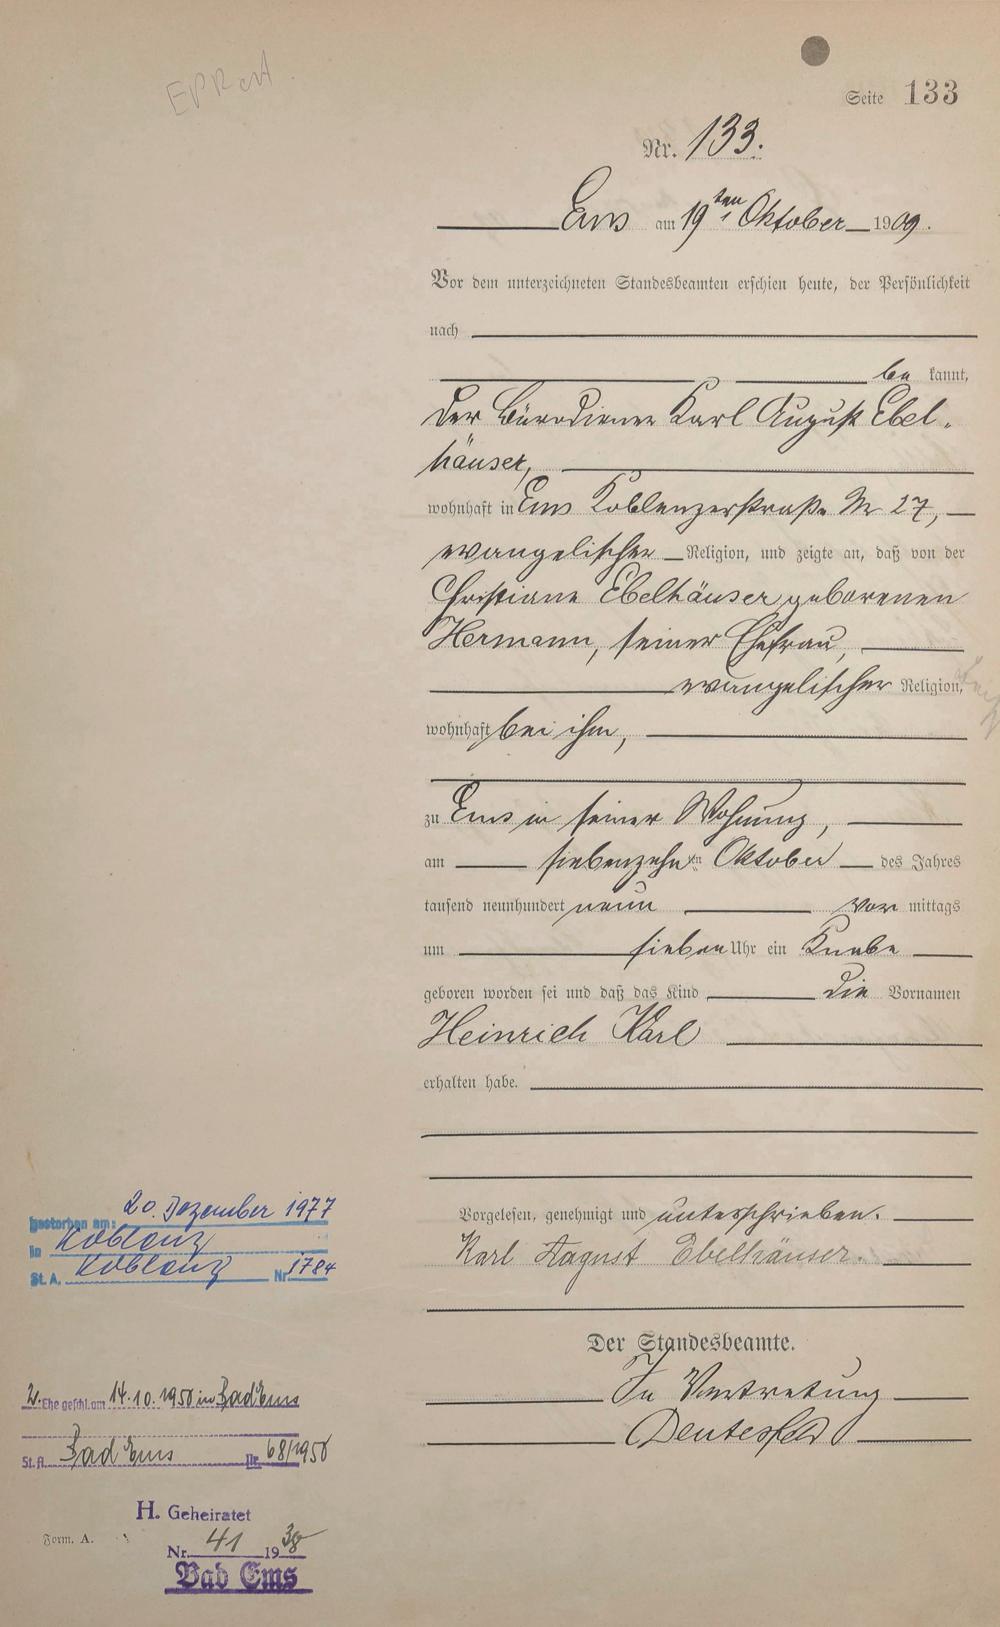 Seite 133
Nr. 133.
Ems am 19ten Oktober 1909.
Vor dem unterzeichneten Standesbeamten erschien heute, der Persönlichkeit
nach
be kannt,
der Bürodiener Karl August Ebel-
häuser,
wohnhaft in Ems Koblenzerstraße Nr 27,
evangelischer Religion, und zeigte an, daß von der
Christiane Ebelhäuser geborenen
Hermann, seiner Ehefrau,
evangelischer Religion,
wohnhaft bei ihm,
zu Ems in seiner Wohnung,
am siebenzehnten Oktober des Jahres
tausend neunhundert neun vor mittags
um sieben Uhr ein Knabe
geboren worden sei und daß das Kind die Vornamen
Heinrich Karl
erhalten habe.
Vorgelesen, genehmigt und unterschrieben.
Karl August Ebelhäuser.
Der Standesbeamte.
In Vertretung
gestorben am: 20. Dezember 1977
in Koblenz
St. A. Koblenz Nr 1784
2. Ehe geschl. am 14.10.1950 in Bad Ems
St. A. Bad Ems Nr. 68/1950
H. Geheiratet
Nr. 41 1938
Bad Ems
Form. A.